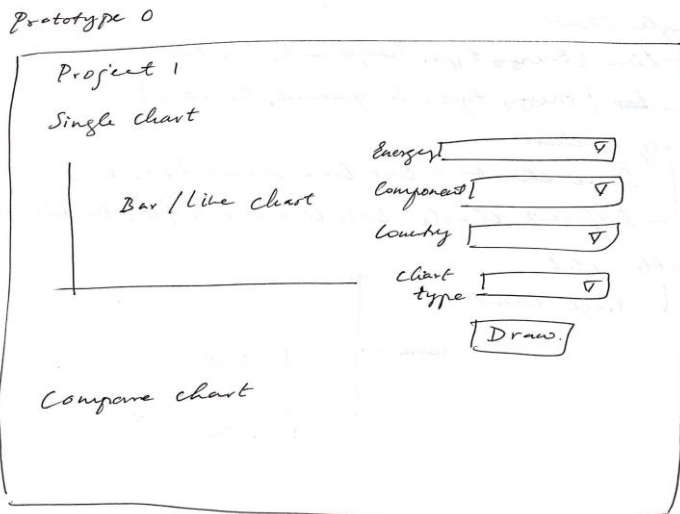 Prototype 0
Project 1
Single chart
Bar / Line chart
Energy
Component
Country
Chart
type
Draw.
Compare chart